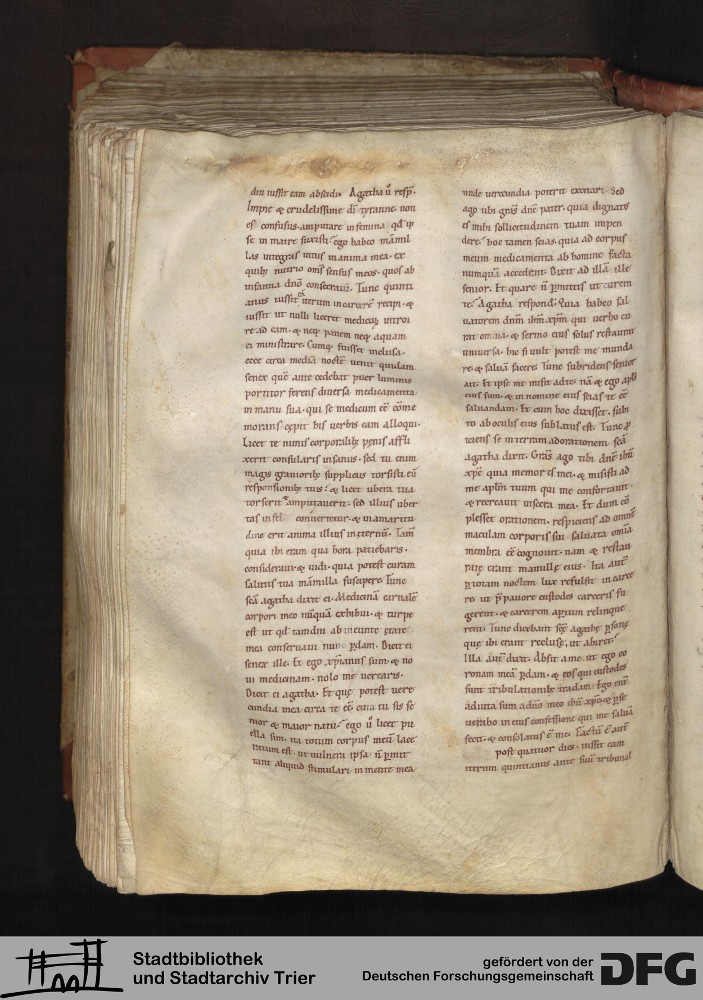 diu iussit eam abscidi. Agatha ū resp̄.
Impie & crudelissime dı̄ tyranne. non
es confusus. amputare in femina qd̄ ip
se in matre suxisti? ego habeo mamil
las integras intus in anima mea. ex
quib; nutrio om̄s sensus meos. quos ab
infantia dn̄o consecraui. Tunc quinti
anus iussit iterum in carcerē recipi. &
iussit ut nulli liceret medicorꝝ introi
re ad eam. & neq; panem neq; aquam
ei ministrare. Cumq; fuisset inclusa.
ecce circa mediā noctē uenit quidam
senex quē ante cedebat puer luminis
portitor ferens diuersa medicamenta
in manu sua. qui se medicum eē cōme
morans cepit his uerbis eam alloqui.
Licet te nimis corporalib; penis affli
xerit consularis insanus. sed tu eum
magis grauiorib; suppliciis torsisti eū
responsionib; tuis. & licet ubera tua
torserit & amputauerit. sed illius uber
tas in fel conuertetur. & in amaritu
dine erit anima illius in eternū.
quia ibi eram qua hora patiebaris.
consideraui. & uidi. quia potest curam
salutis tua mamilla suscipere. Tunc
sc̄a agatha dixit ei. Medicinā carnalē
corpori meo nūquā exhibui. & turpe
est ut qd̄ tamdiu ab ineunte etate
mea conseruaui nunc p̄dam. Dicit ei
senex ille. Et ego xp̄ianus sum. & no
ui medicinam. nolo me uerearis.
Dicit ei agatha. Et que potest uere
cundia mea circa te eē. cum tu sis se
nior & maior natu? ego ū licet pu
ella sim. ita totum corpus meū lace
ratum est. ut uulnera ipsa n̄ p̄mit
tant aliquid stimulari in mente mea
unde uerecundia poterit excitari. Sed
ago tibi gras̄ dn̄e pater. quia dignatus
es mihi sollicitudinem tuam impen
dere. hoc tamen scias. quia ad corpus
meum medicamenta ab homine facta
numquā accedent. Dixit ad illā ille
senior. Et quare n̄ p̄mittis ut curem
te? Agatha respond̄. Quia habeo sal
uatorem dn̄m ihm̄ xp̄m qui uerbo cu
rat omnia. & sermo eius solus restaurat
uniuersa. hic si uult potest me munda
re. & saluā facere. Tunc subridens senior
ait. Et ipse me misit ad te. nā & ego apl̄s
eius sum. & in nomine eius scias te eē
saluandam. Et cum hoc dixisset. subi
to ab oculis eius sublatus est. Tunc p̄
iciens se in terram adorationem sc̄a
agatha dixit. Gras̄ ago tibi dn̄e ihū
xp̄e quia memor es mei. & misisti ad
me apl̄m tuum qui me confortauit.
& recreauit uiscera mea. Et dum cō
plesset orationem. respiciens ad omnē
maculam corporis sui saluata om̄ia
membra eē cognouit. nam & restau
rate erant mamille eius. Ita aut̄
p̄ totam noctem lux refulsit in carce
re ut p̄ pauore custodes carceris fu
gerent. & carcerem aptum relinque
rent. Tunc dicebant sc̄e agathe p̄sone
que ibi erant recluse. ut abiret.
Illa aut̄ dixit. Absit a me. ut ego co
ronam meā p̄dam. & eos qui custodes
sunt tribulationib; tradam. Ego enī
adiuta sum a dn̄o meo ihū xp̄o. & p̄se
uerabo in eius confessione qui me saluā
fecit. & consolatus ē me. Factū ē aut̄
post quatuor dies. iussit eam
iterum quintianus ante suū tribunal
Stadtbibliothek
und Stadtarchiv Trier
gefördert von der
Deutschen Forschungsgemeinschaft
DFG